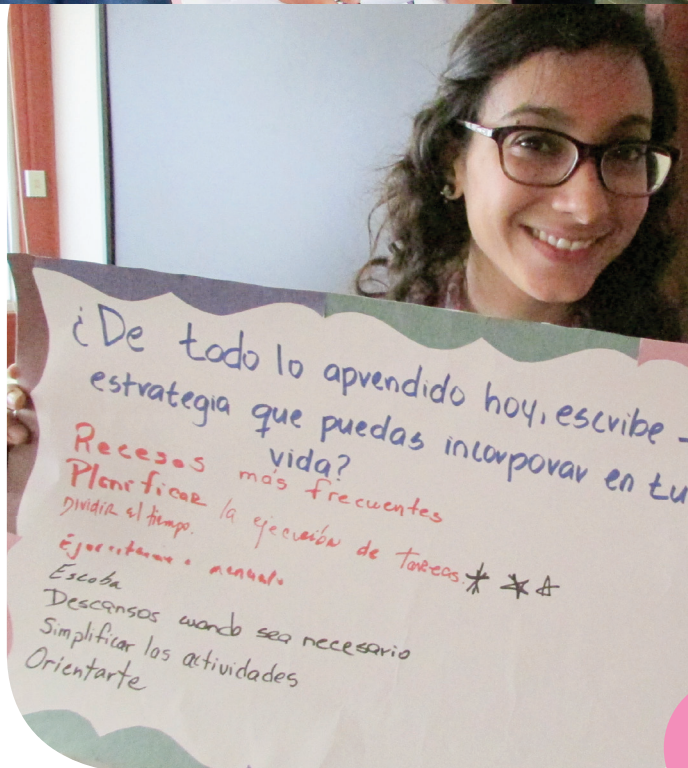 ¿De todo lo aprendido hoy, escribe -
estrategia que puedas incorporar en tu
vida?
Recesos más frecuentes
Planificar la ejecución de tareas.
Dividir el tiempo.
Escoba
Descansos cuando sea necesario
Simplificar las actividades
Orientarte